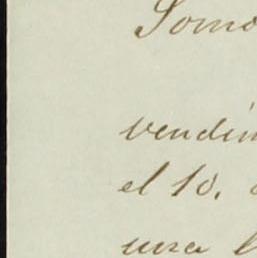 Somo
vendim
el 10.
una l